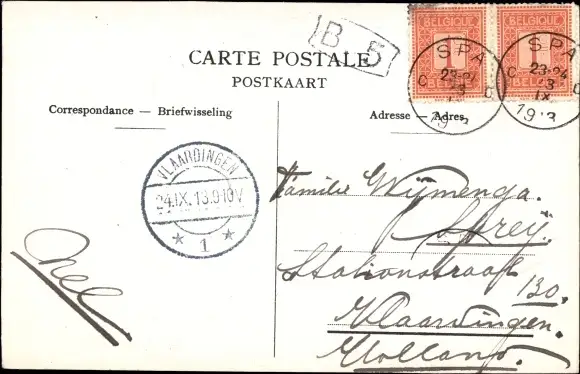 B 5
BELGIQUE
1
BELGIË
BELGIQUE
1
BELGIË
SPA
23-24
23
IX
1913
SPA
23-24
23
IX
1913
CARTE POSTALE
POSTKAART
Correspondance — Briefwisseling
Adresse — Adres
VLAARDINGEN
24.IX.13.9-10V
1
Nel
Familie Wijmenga.
Stationstraat 130.
Vlaardingen.
Holland.